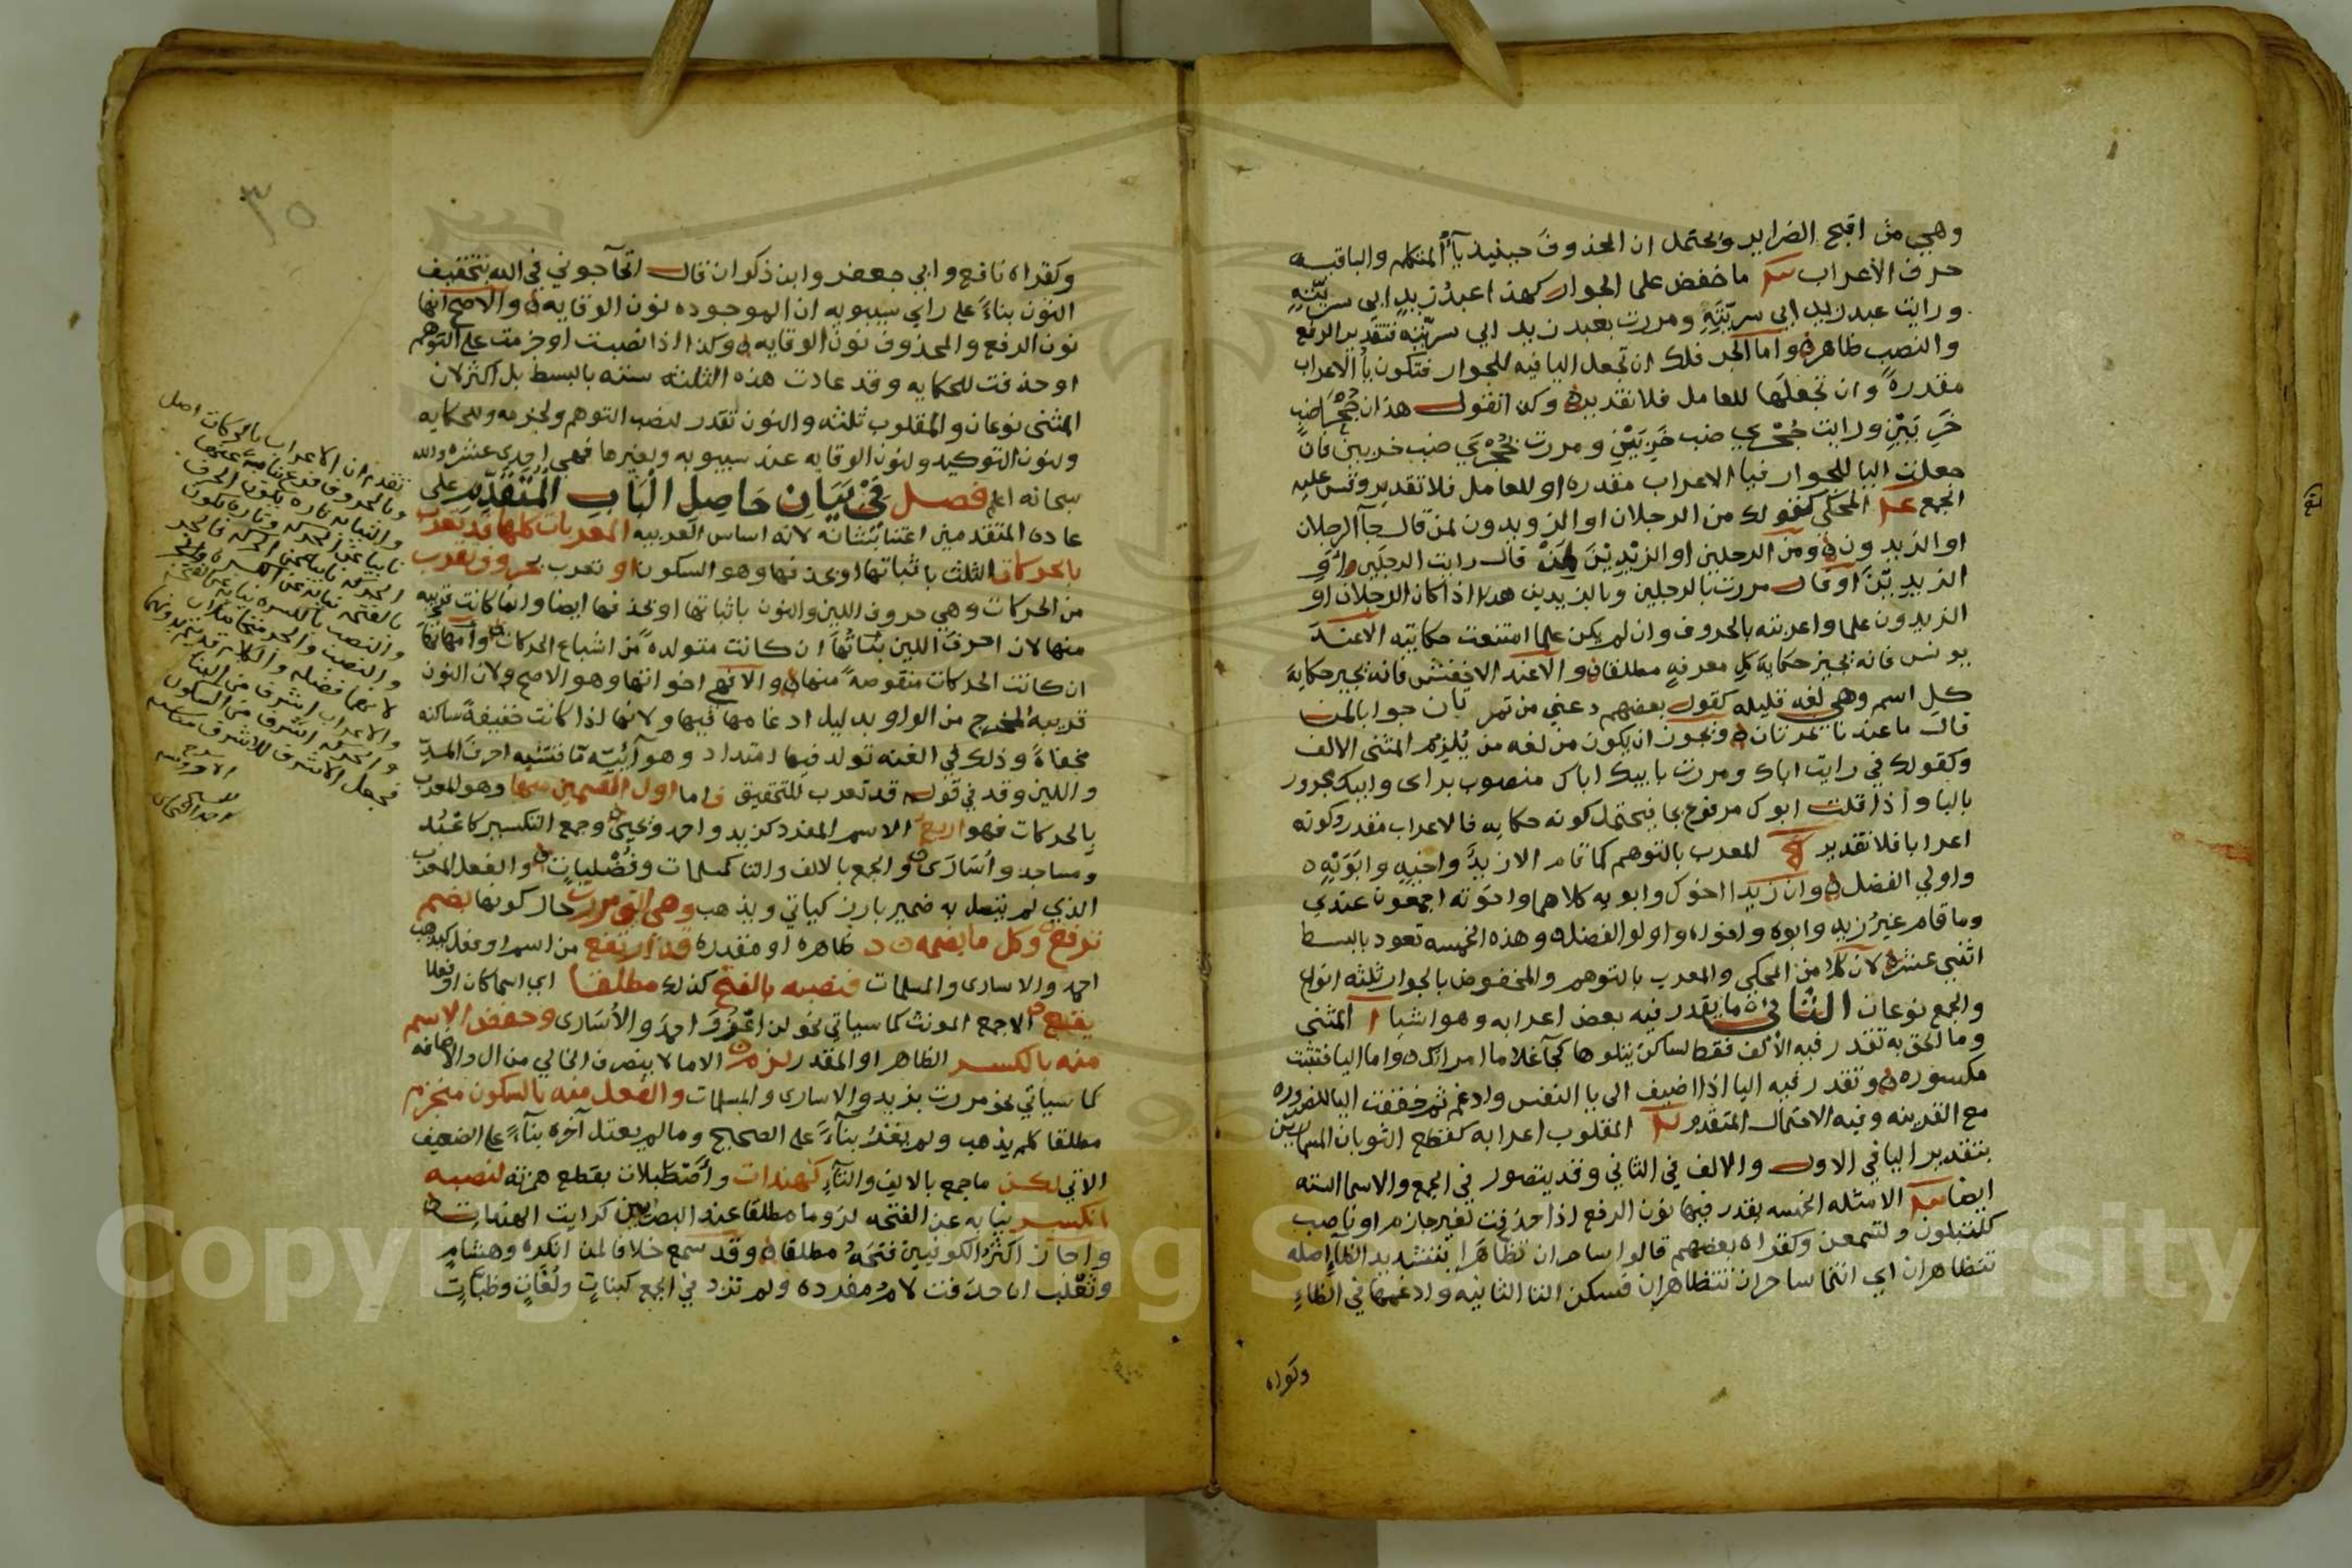 وهي من اقبح الضراير ويحتمل ان المحذوف حينيذ يآ المتكلم والباقيه
حرف الاعراب ما خفض على الجوار كهذا عبد زيد ابي سريته
ورايت عبد زيد ابي سريته ومررت بعبد زيد ابي سريته فتقدير الرفع
والنصب ظاهر واما الجر فلك ان تجعل اليا فيه للجوار فتكون يا الاعراب
مقدرة وان تجعلها للعامل فلا تقدير وكذا تقول هذان جحرا ضب
خربين ورايت جحري ضب خربين ومررت بجحري ضب خربين فان
جعلت اليا للجوار فيا الاعراب مقدره او للعامل فلا تقدير وقس عليه
الجمع المحكي كقولك من الرجلان او الزويدون لمن قال جآ الرجلان
او الزيدون ومن الرجلين او الزيدين لمن قال رايت الرجلين او
الزيدين او قال مررت بالرجلين وبالزيدين هذا اذا كان الرجلان او
الزيدون علما واعربته بالحروف وان لم يكن علما امتنعت حكايته الا عند
يونس فانه يجيز حكاية كل معرفه مطلقا والا عند الاخفش فانه يجيز حكاية
كل اسم وهي لغه قليله كقول بعضهم دعني من تمرتان جوابا لمن
قال ما عندنا تمرتان ويجوز ان يكون من لغه من يلزم المثنى الالف
وكقولك في رايت اباك ومررت بابيك اباك منصوب براى وابيك مجرور
بالبا واذا قلت ابوك مرفوع بجا فيحتمل كونه حكايه فالاعراب مقدر وكونه
اعرابا فلا تقدير المعرب بالتوهم كما قام الا زيد واخيه وابويه
واولي الفضل وان زيدا اخوك وابويه كلاهما واخوته اجمعون عندي
وما قام غير زيد وابوه واخوه واولو الفضل وهذه الخمسه تعود بالبسط
اثني عشر لان كلا من المحكي والمعرب بالتوهم والمخفوض بالجوار ثلثه انواع
والجمع نوعان الثاني ما يقدر فيه بعض اعرابه وهو اشيا المثنى
وما الحق به تقدر فيه الالف فقط لساكن يتلوها كجآ غلاما امراتك واما اليا فتثبت
مكسوره وتقدر فيه اليا اذا اضيف الى يا النفس وادغم ثم خففت اليا للضروره
مع القرينه وفيه الاحتمال المتقدم المقلوب اعرابه كقطع الثوبان المسمارين
بتقدير اليا في الاول والالف في الثاني وقد يتصور في الجمع والاسما السته
ايضا الامثله الخمسه يقدر فيها نون الرفع اذا حذفت لغير جازم او ناصب
كلتبلون ولتسمعن وكقراه بعضهم قالوا ساحران تظاهرا بتشديد الظآ اصله
تتظاهران اي انتما ساحران تتظاهران فسكن التا الثانيه وادغمها في الظاء
وكقراه
٣٥
وكقراه نافع وابي جعفر وابن ذكوان قال اتحآجوني في الله بتخفيف
النون بناءً على راي سيبويه ان الموجوده نون الوقايه والاصح انها
نون الرفع والمحذوف نون الوقايه وكذا اذا نصبت او جزمت على التوهم
او حذفت للحكايه وقد عادت هذه الثلثه سته بالبسط بل اكثر لان
المثنى نوعان والمقلوب ثلثه والنون تقدر لنصب التوهم ولجزمه وللحكايه
ولنون التوكيد ولنون الوقايه عند سيبويه ولغيرها فهي احدى عشره والله
سبحانه اعلم فصل في بيان حاصل الباب المتقدم على
عادة المتقدمين اعتنا بشانه لانه اساس العربيه المعربات كلها قد تعرب
بالحركات الثلث باثباتها او بحذفها وهو السكون او تعرب بحروف تقرب
من الحركات وهي حروف اللين والنون باثباتها او بحذفها ايضا وانما كانت قريبه
منها لان احرف اللين بناتها ان كانت متولدة من اشباع الحركات وامهاتها
ان كانت الحركات منقوصة منها والا فهي اخواتها وهو الاصح ولان النون
قريبه المخرج من الواو بدليل ادغامها فيها ولانها اذا كانت خفيفة ساكنه
مخفاة وذلك في الغنه تولد فيها امتداد وهو آيته ما فتشبه احرف المد
واللين وقد في قوله قد تعرب للتحقيق فاما اول القسمين منها وهو المعرب
بالحركات فهو اربع الاسم المفرد كزيد واحمد ويحيى وجمع التكسير كاعبد
ومساجد واسارى والجمع بالالف والتا كمسلمات وفضليات والفعل المعرب
الذي لم يتصل به ضمير بارز كياتي ويذهب وهي التي مررت حال كونها بضم
ترفع وكل ما بضمه ظاهره او مقدره قد ارتفع من اسم او فعل كيذهب
احمد والاسارى والمسلمات فنصبه بالفتح كذلك مطلقا اي اسما كان او فعلا
يقع الا جمع المونث كما سياتي نحو لن اغزو احمد والاسارى وخفض الاسم
منه بالكسر الظاهر او المقدر لزم الا ما لا ينصرف الخالي من ال والاضافه
كما سياتي نحو مررت بزيد والاسارى والمسلمات والفعل منه بالسكون منجزم
مطلقا كلم يذهب ولم يغز بنآءً على الصحيح وما لم يعتل آخره بنآءً على الضعيف
الاتي لكن ما جمع بالالف والتآء كهندات واصطبلات بقطع همزته لنصبه
انكسر نيابه عن الفتحه لزوما مطلقا عند البصريين كرايت الهندات
واجاز اكثر الكوفيين فتحه مطلقا وقد سمع خلافا لمن انكره وهشام
وثعلب ان حذفت لام مفرده ولم ترد في الجمع كبنات ولغات وظبات
تقدم ان الاعراب بالحركات اصل
وبالحروف فرع نيابة عنها
والنيابه تاره يكون الحرف
نايبا عن الحركه وتاره تكون
الحركه نايبه عن الحركه فالجر
بالفتحه نيابة عن الكسره
والنصب بالكسره نيابه عن الفتحه